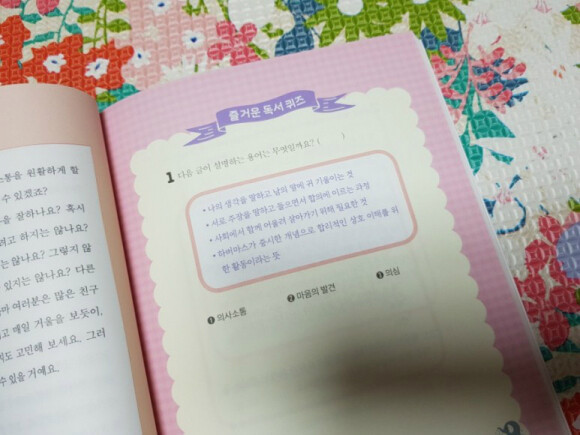 소통을 원활하게 할
수 있겠죠?
을 잘하나요? 혹시
려고 하지는 않나요?
는 않나요? 그렇지 않
있지는 않나요? 다른
마 여러분은 많은 친구
고 매일 거울을 보듯이,
지도 고민해 보세요. 그러
수 있을 거예요.
즐거운 독서 퀴즈
1 다음 글이 설명하는 용어는 무엇일까요? ( )
• 나의 생각을 말하고 남의 말에 귀 기울이는 것
• 서로 주장을 말하고 들으면서 합의에 이르는 과정
• 사회에서 함께 어울려 살아가기 위해 필요한 것
• 하버마스가 중시한 개념으로 합리적인 상호 이해를 위
한 활동이라는 뜻
❶ 의사소통 ❷ 마음의 발견 ❸ 의심